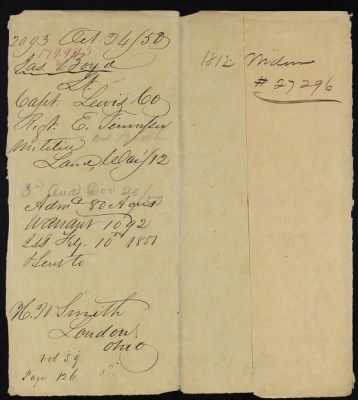 2093 Oct. 24/50
Jas. Boyd
Lt.
Capt. Lewis Co
Regt. E. Tennessee
Militia
Land, War/12
3d Aud Dec 20/50
Admd 80 Acres
Warrant 1092
Feby. 10th 1851
& Sent to
H. W Smith
London
Ohio
vol 59
Page 126
1812 Widow
# 27296